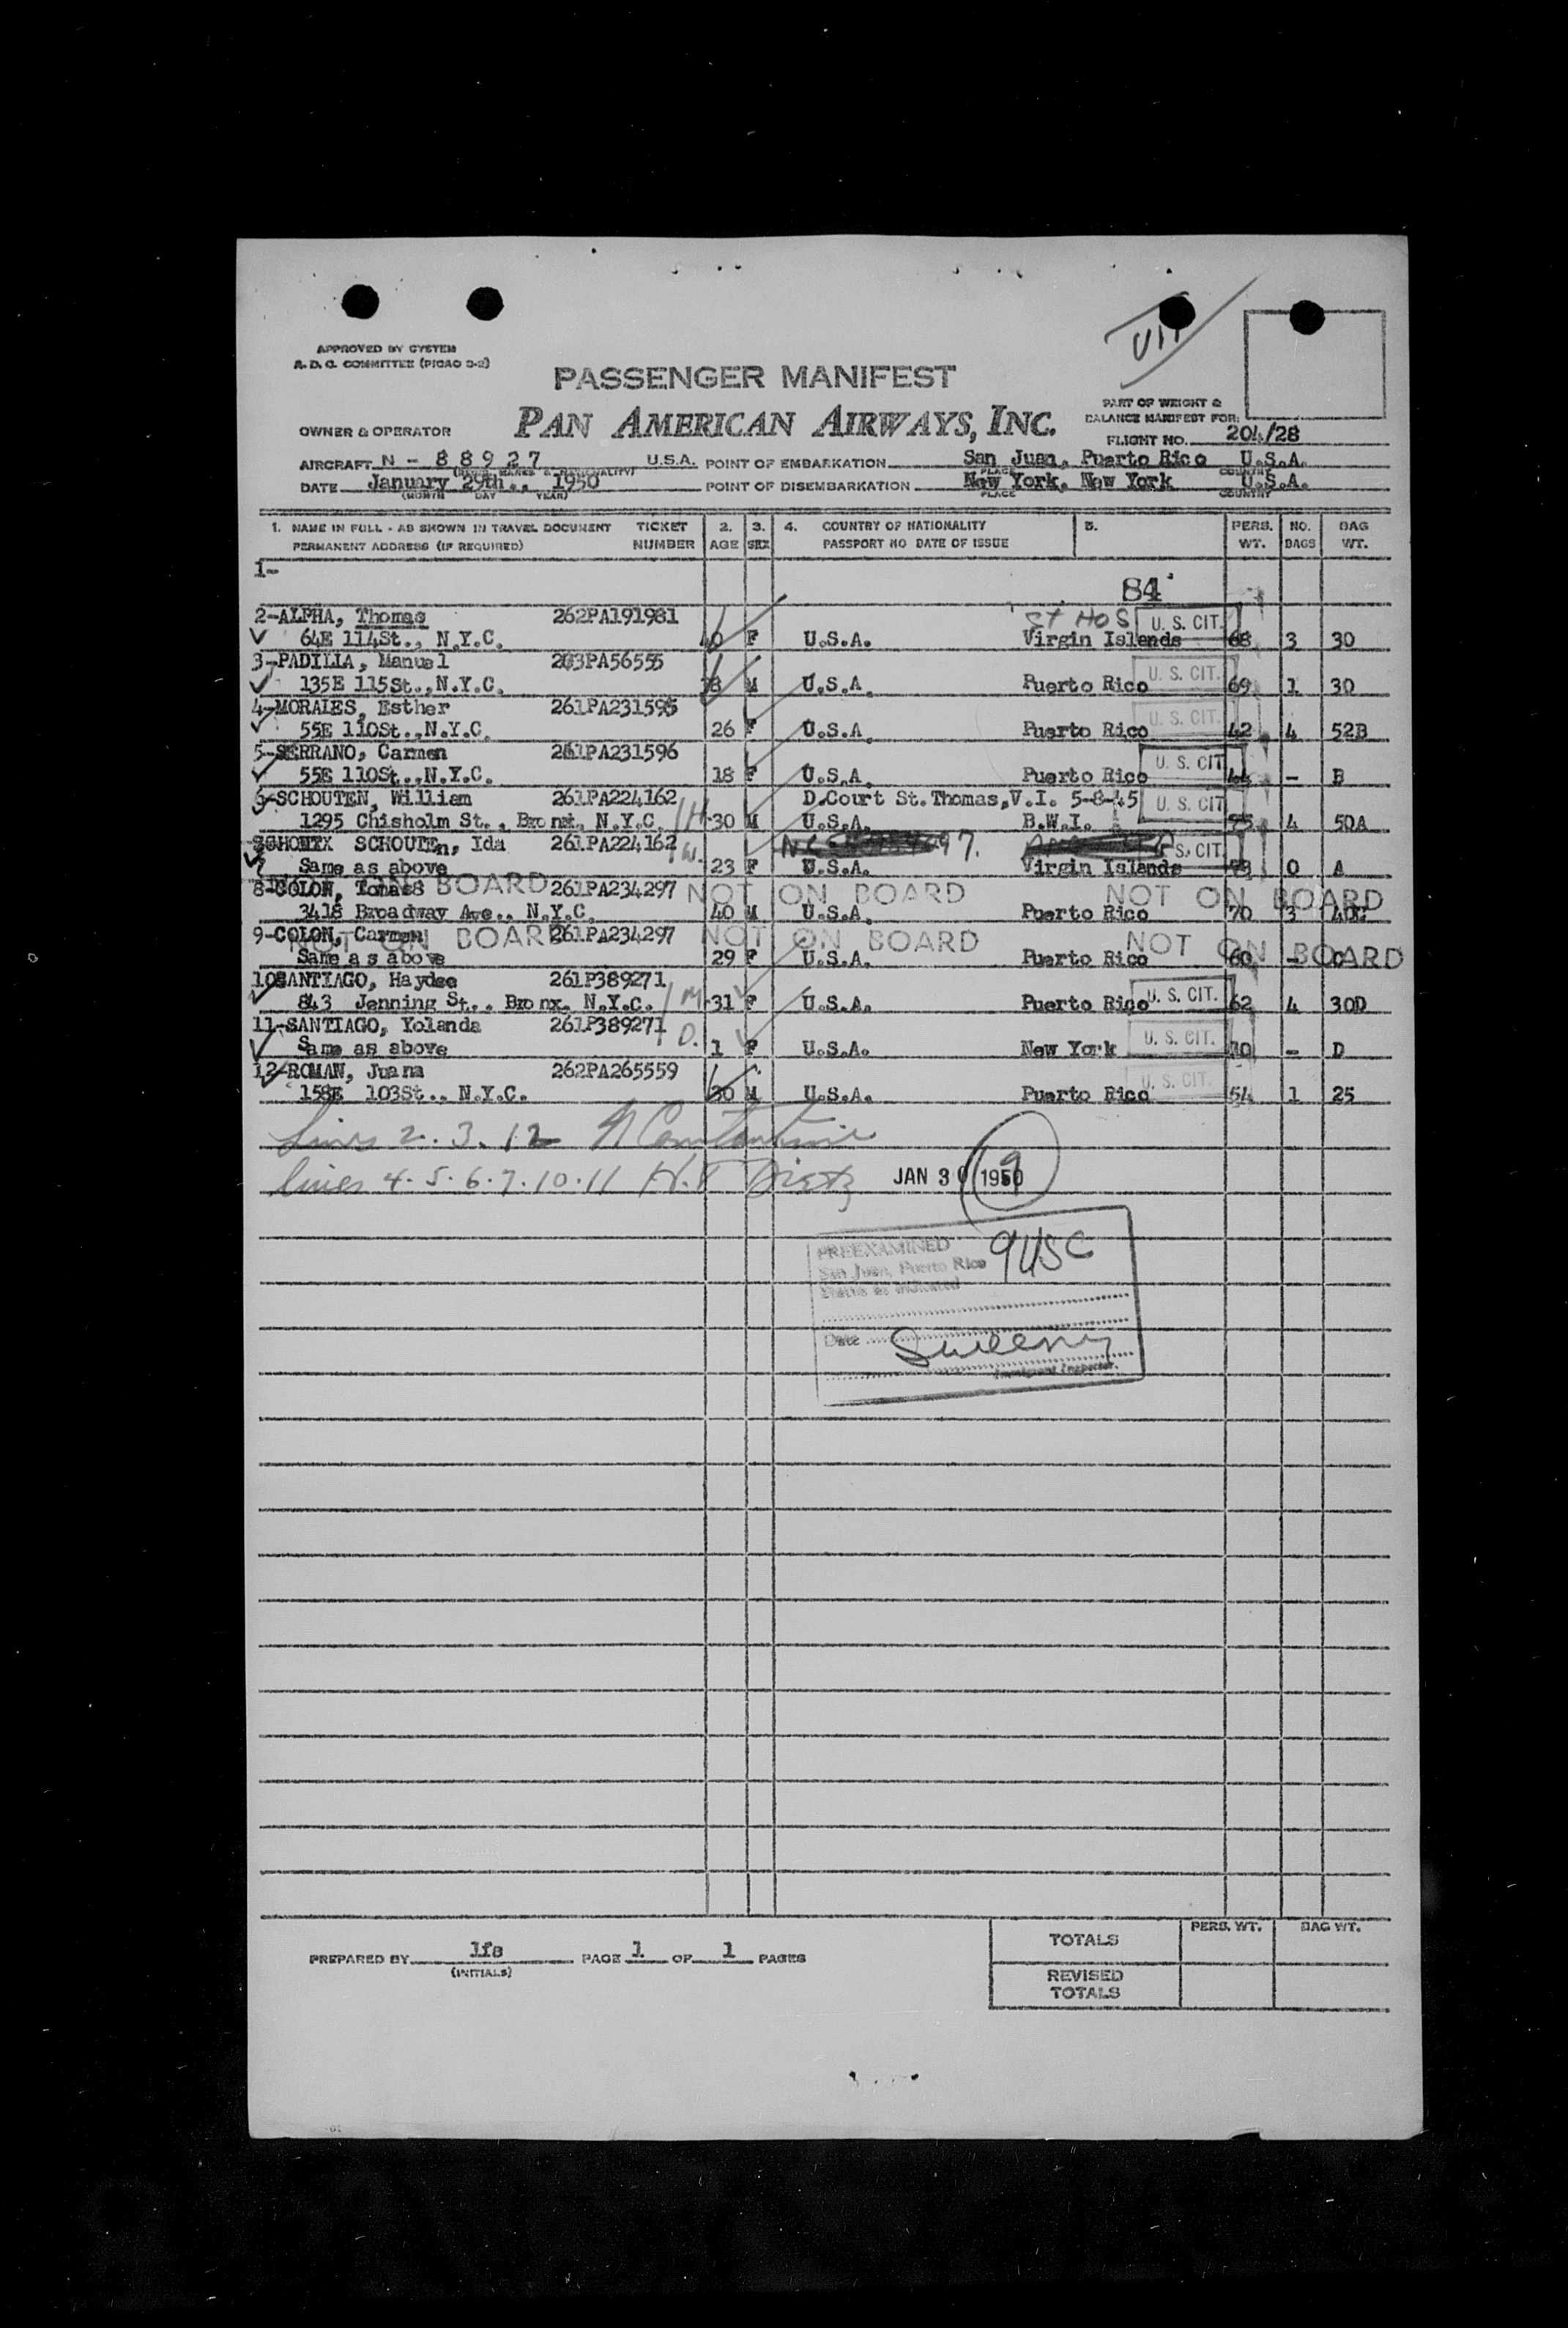 VII
APPROVED BY SYSTEM
A. D. C. COMMITTEE (PICAO D-2)
PASSENGER MANIFEST
PAN AMERICAN AIRWAYS, INC.
PART OF WEIGHT &
BALANCE MANIFEST FOR:
OWNER & OPERATOR
FLIGHT NO. 204/28
AIRCRAFT N - 88927 U.S.A. POINT OF EMBARKATION San Juan, Puerto Rico U.S.A.
PLACE COUNTRY
DATE January 29th., 1950 POINT OF DISEMBARKATION New York, New York U.S.A.
(MONTH DAY YEAR) PLACE COUNTRY
1. NAME IN FULL - AS SHOWN IN TRAVEL DOCUMENT TICKET 2. 3. 4. COUNTRY OF NATIONALITY 5. PERS. NO. BAG
PERMANENT ADDRESS (IF REQUIRED) NUMBER AGE SEX PASSPORT NO DATE OF ISSUE WT. BAGS WT.
1-
84
2-ALPHA, Thomas 262PA191981 St Hos U. S. CIT.
64E 114St., N.Y.C. 40 F U.S.A. Virgin Islands 68 3 30
3-PADILLA, Manuel 203PA56555 U. S. CIT.
135E 115St.,N.Y.C. M U.S.A. Puerto Rico 69 1 30
4-MORALES, Esther 261PA231595 U. S. CIT.
55E 110St.,N.Y.C. 26 F U.S.A. Puerto Rico 42 4 52B
5-SERRANO, Carmen 261PA231596 U. S. CIT
55E 110St.,N.Y.C. 18 F U.S.A. Puerto Rico 44 - B
6-SCHOUTEN, William 261PA224162 D.Court St.Thomas,V.I. 5-8-45 U. S. CIT
1295 Chisholm St., Bronx, N.Y.C. H 30 M U.S.A. B.W.I. 4 50A
SCHOUTEn, Ida 261PA224162 W. S. CIT.
Same as above 23 F U.S.A. Virgin Islands 0 A
8-COLON, Tomas 261PA234297 NOT ON BOARD NOT ON BOARD
ON BOARD
3418 Broadway Ave., N.Y.C. 40 M U.S.A. Puerto Rico 70 3 40C
9-COLON, Carmen 261PA234297
NOT ON BOARD NOT ON BOARD NOT ON BOARD
Same as above 29 F U.S.A. Puerto Rico 60 - C
10SANTIAGO, Haydee 261P389271 U. S. CIT.
843 Jenning St., Bronx, N.Y.C. M 31 F U.S.A. Puerto Rico 62 4 30D
11-SANTIAGO, Yolanda 261P389271 D. U. S. CIT.
Same as above 1 F U.S.A. New York 10 - D
12-ROMAN, Juana 262PA265559 U. S. CIT.
158E 103St., N.Y.C. M U.S.A. Puerto Rico 54 1 25
Lines 2. 3. 12 N Constantine
lines 4. 5. 6. 7. 10. 11 H.T Dietz JAN 30 1950 9
PREEXAMINED 9USC
San Juan, Puerto Rico
Status as indicated
Date Sweeny
Immigrant Inspector.
PERS. WT. BAG WT.
TOTALS
PREPARED BY lfs PAGE 1 OF 1 PAGES
(INITIALS)
REVISED
TOTALS